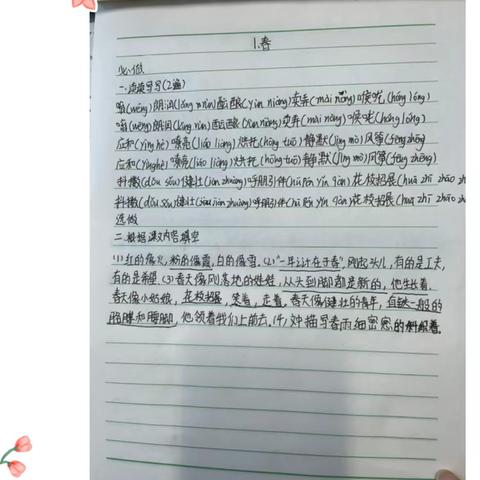 1.春
必做
一.读读写写(2遍)
嗡(wēng)朗润(lǎng rùn)酝酿(yùn niàng)卖弄(mài nòng)喉咙(hóu lóng)
嗡(wēng)朗润(lǎng rùn)酝酿(yùn niàng)卖弄(mài nòng)喉咙(hóu lóng)
应和(yìng hè)嘹亮(liáo liàng)烘托(hōng tuō)静默(jìng mò)风筝(fēng zhēng)
应和(yìng hè)嘹亮(liáo liàng)烘托(hōng tuō)静默(jìng mò)风筝(fēng zhēng)
抖擞(dǒu sǒu)健壮(jiàn zhuàng)呼朋引伴(hū péng yǐn bàn)花枝招展(huā zhī zhāo zh
抖擞(dǒu sǒu)健壮(jiàn zhuàng)呼朋引伴(hū péng yǐn bàn)花枝招展(huā zhī zhāo zh
选做
二.根据课文内容填空
(1)红的像火,粉的像霞,白的像雪.(2)"一年之计在于春",刚起头儿,有的是工夫,
有的是希望.(3)春天像刚落地的娃娃,从头到脚都是新的,他生长着.
春天像小姑娘,花枝招展,笑着,走着.春天像健壮的青年,有铁一般的
胳膊和腰脚,他领着我们上前去.(4)文中描写春雨细密